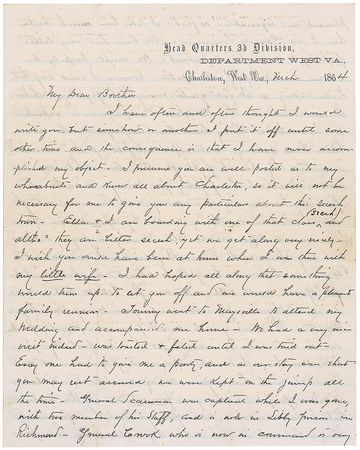 Head Quarters 3d Division,
DEPARTMENT WEST VA.
Charleston, West Va., Mch 1864
My Dear Brother
I have often and often thought I would
write you, but somehow or another I put it off until some
other time and the consequence is that I have never accom-
plished my object. I presume you are well posted as to my
whereabouts and know all about Charleston, so it will not be
necessary for me to give you any particulars about this secesh
town - Ella & I are boarding with one of that class, (Secesh)
altho' they are bitter secesh, yet we get along very nicely -
I wish you could have been at home when I was there with
my little wife - I had hoped all along that something
would turn up to let you off and we would have a pleasant
family reunion - Tommy went to Maysville to attend my
Wedding and accompanied me home - We had a very nice
visit indeed - was toasted & feted until I was tired out -
Every one had to give me a party, and as our stay was short
you may rest assured we were kept on the jump all
the time - General Scammon was captured while I was gone,
with two member of his Staff, and is now in Libby prison in
Richmond - General Crook who is now in command is very